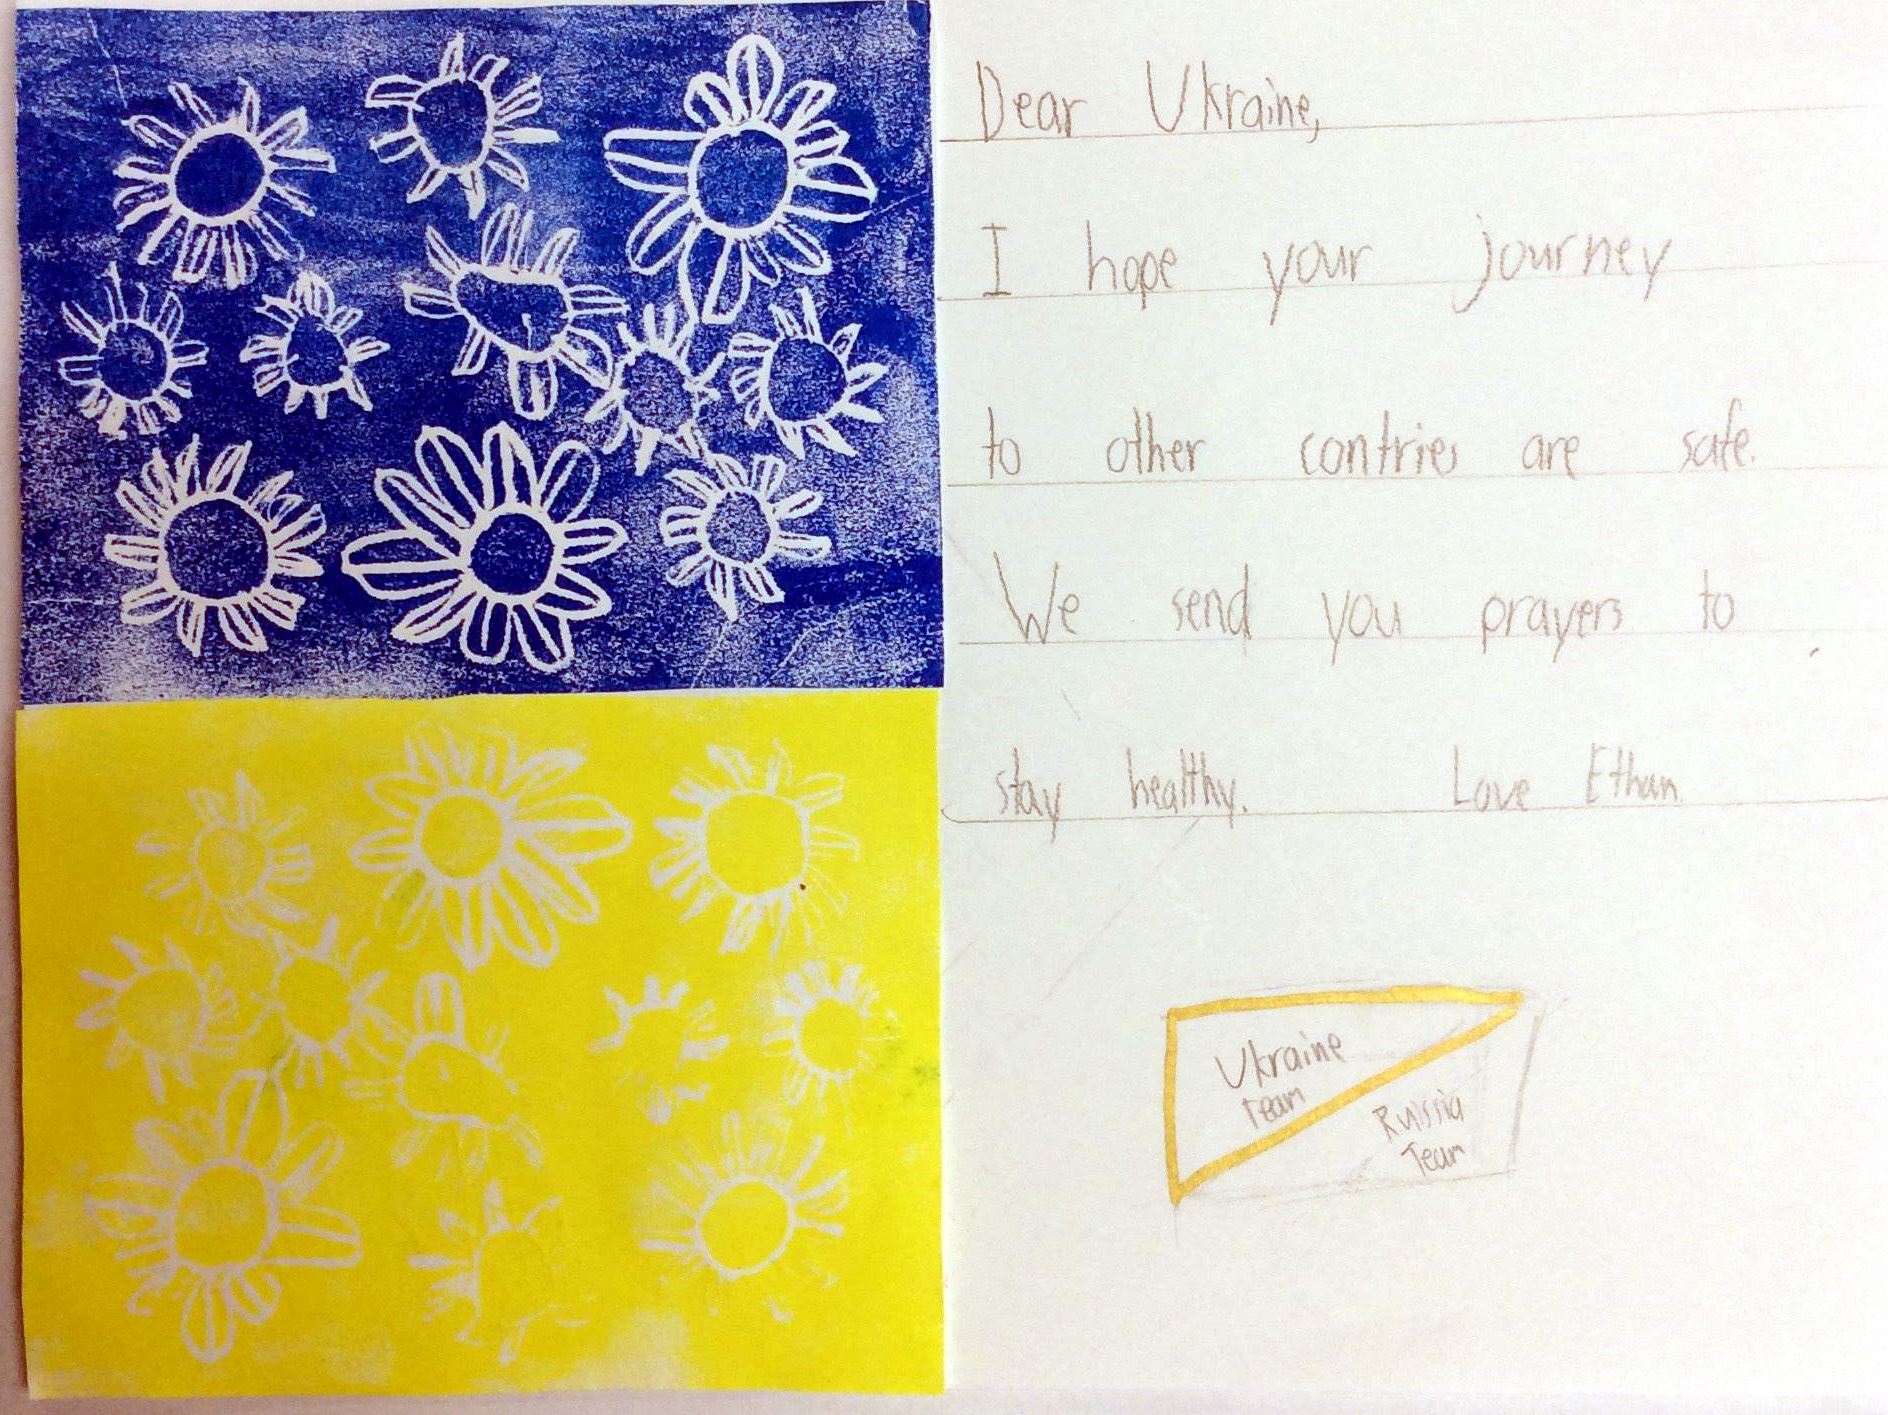 Dear Ukraine,
I hope your journey
to other contries are safe.
We send you prayers to
stay healthy. Love Ethan.
Ukraine
team
Russia
Team